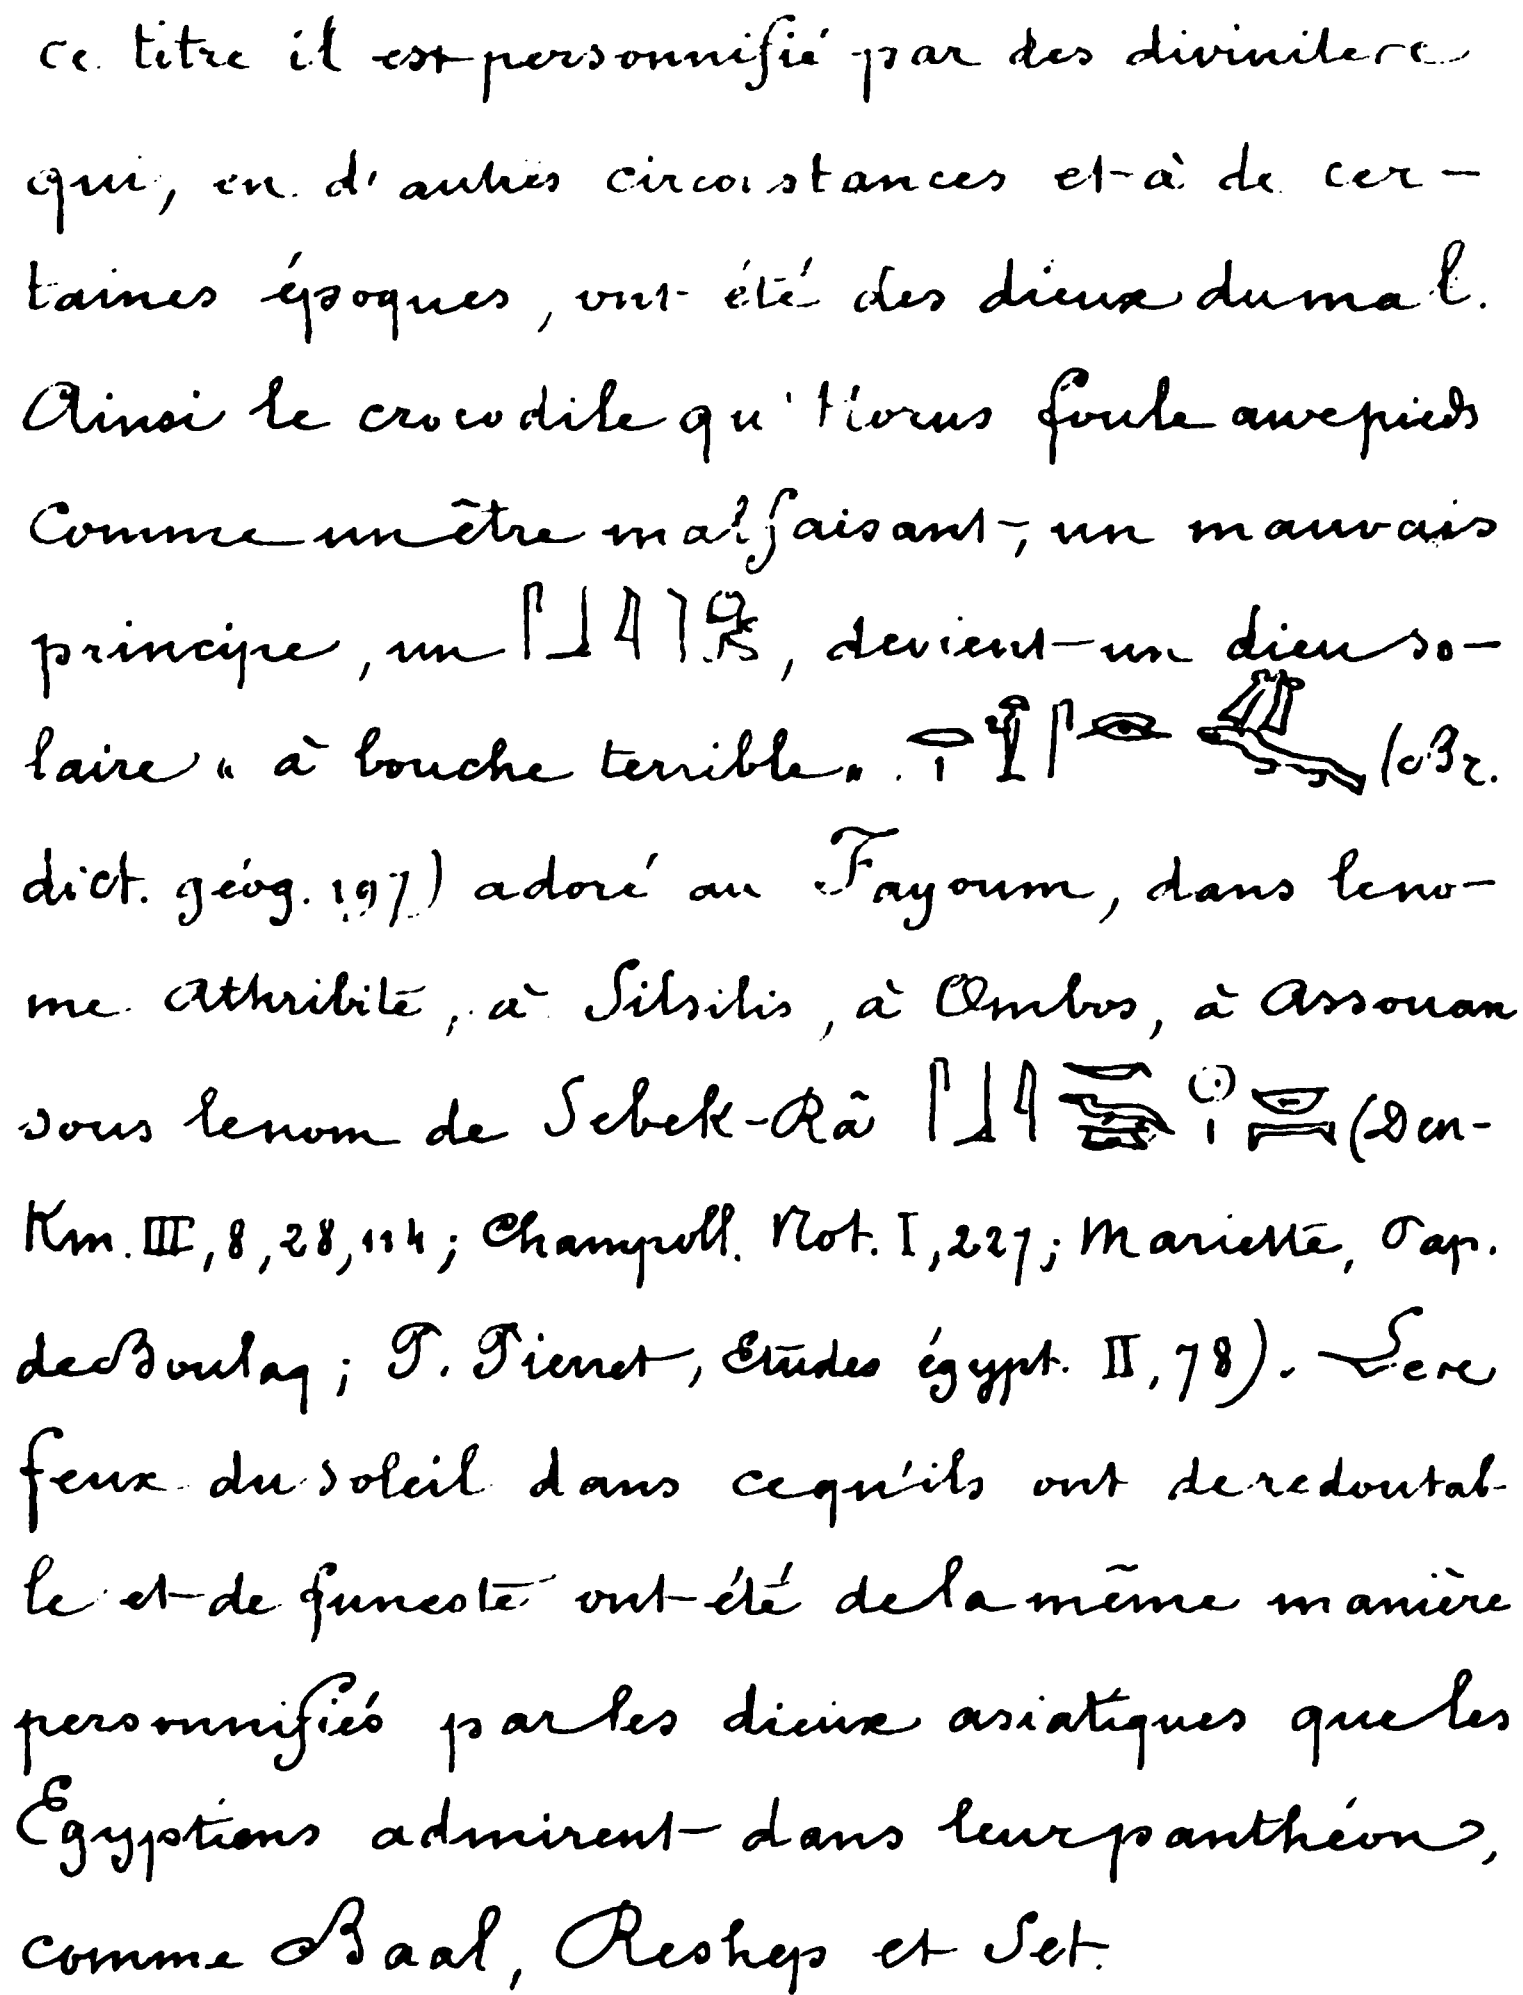 ce titre il est personnifié par des divinités
qui, en d'autres circonstances et à de cer-
taines époques, ont été des dieux du mal.
Ainsi le crocodile qu'Horus foule aux pieds
comme un être malfaisant, un mauvais
principe, un , devient un dieu so-
laire « à bouche terrible » . (Br.
dict. géog. 197) adoré au Fayoum, dans le no-
me Athribite, à Silsilis, à Ombos, à Assouan
sous le nom de Sebek-Râ (Den-
Km. III, 8, 28, 114; Champoll. Not. I, 227; Mariette, Pap.
de Boulaq; P. Pierret, Etudes égypt. II, 78). Les
feux du soleil dans ce qu'ils ont de redoutab-
le et de funeste ont été de la même manière
personnifiés par les dieux asiatiques que les
Egyptiens admirent dans leur panthéon,
comme Baal, Reshep et Set.